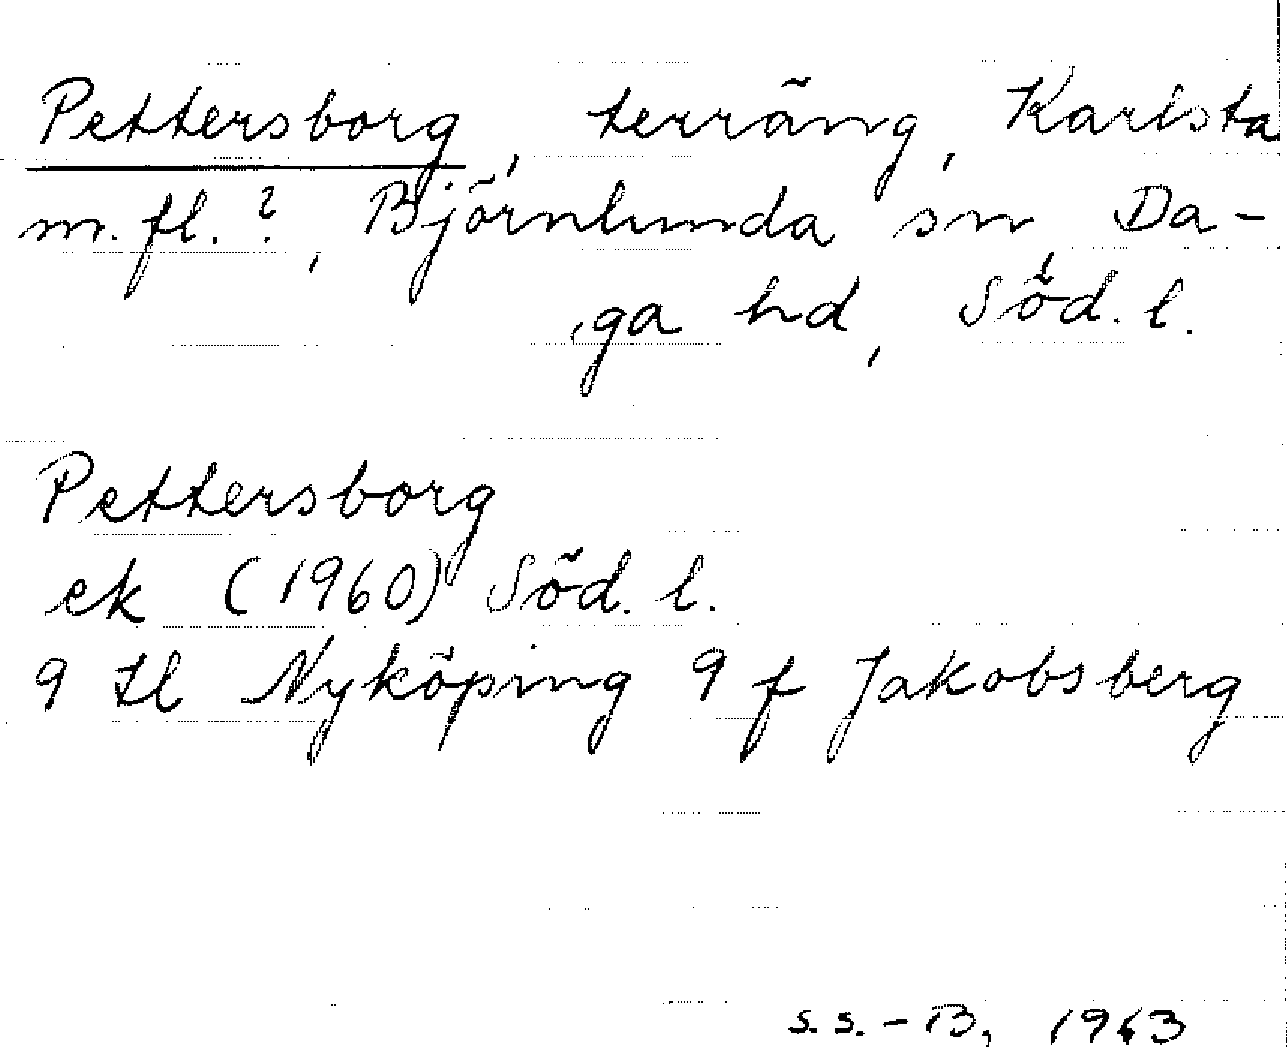 Pettersborg, terräng, Karlsta
m. fl.?, Björnlunda sn, Da-
ga hd, Söd. l.
Pettersborg
ek (1960) Söd. l.
9 H Nyköping 9 f Jakobsberg
S.S.-B, 1963